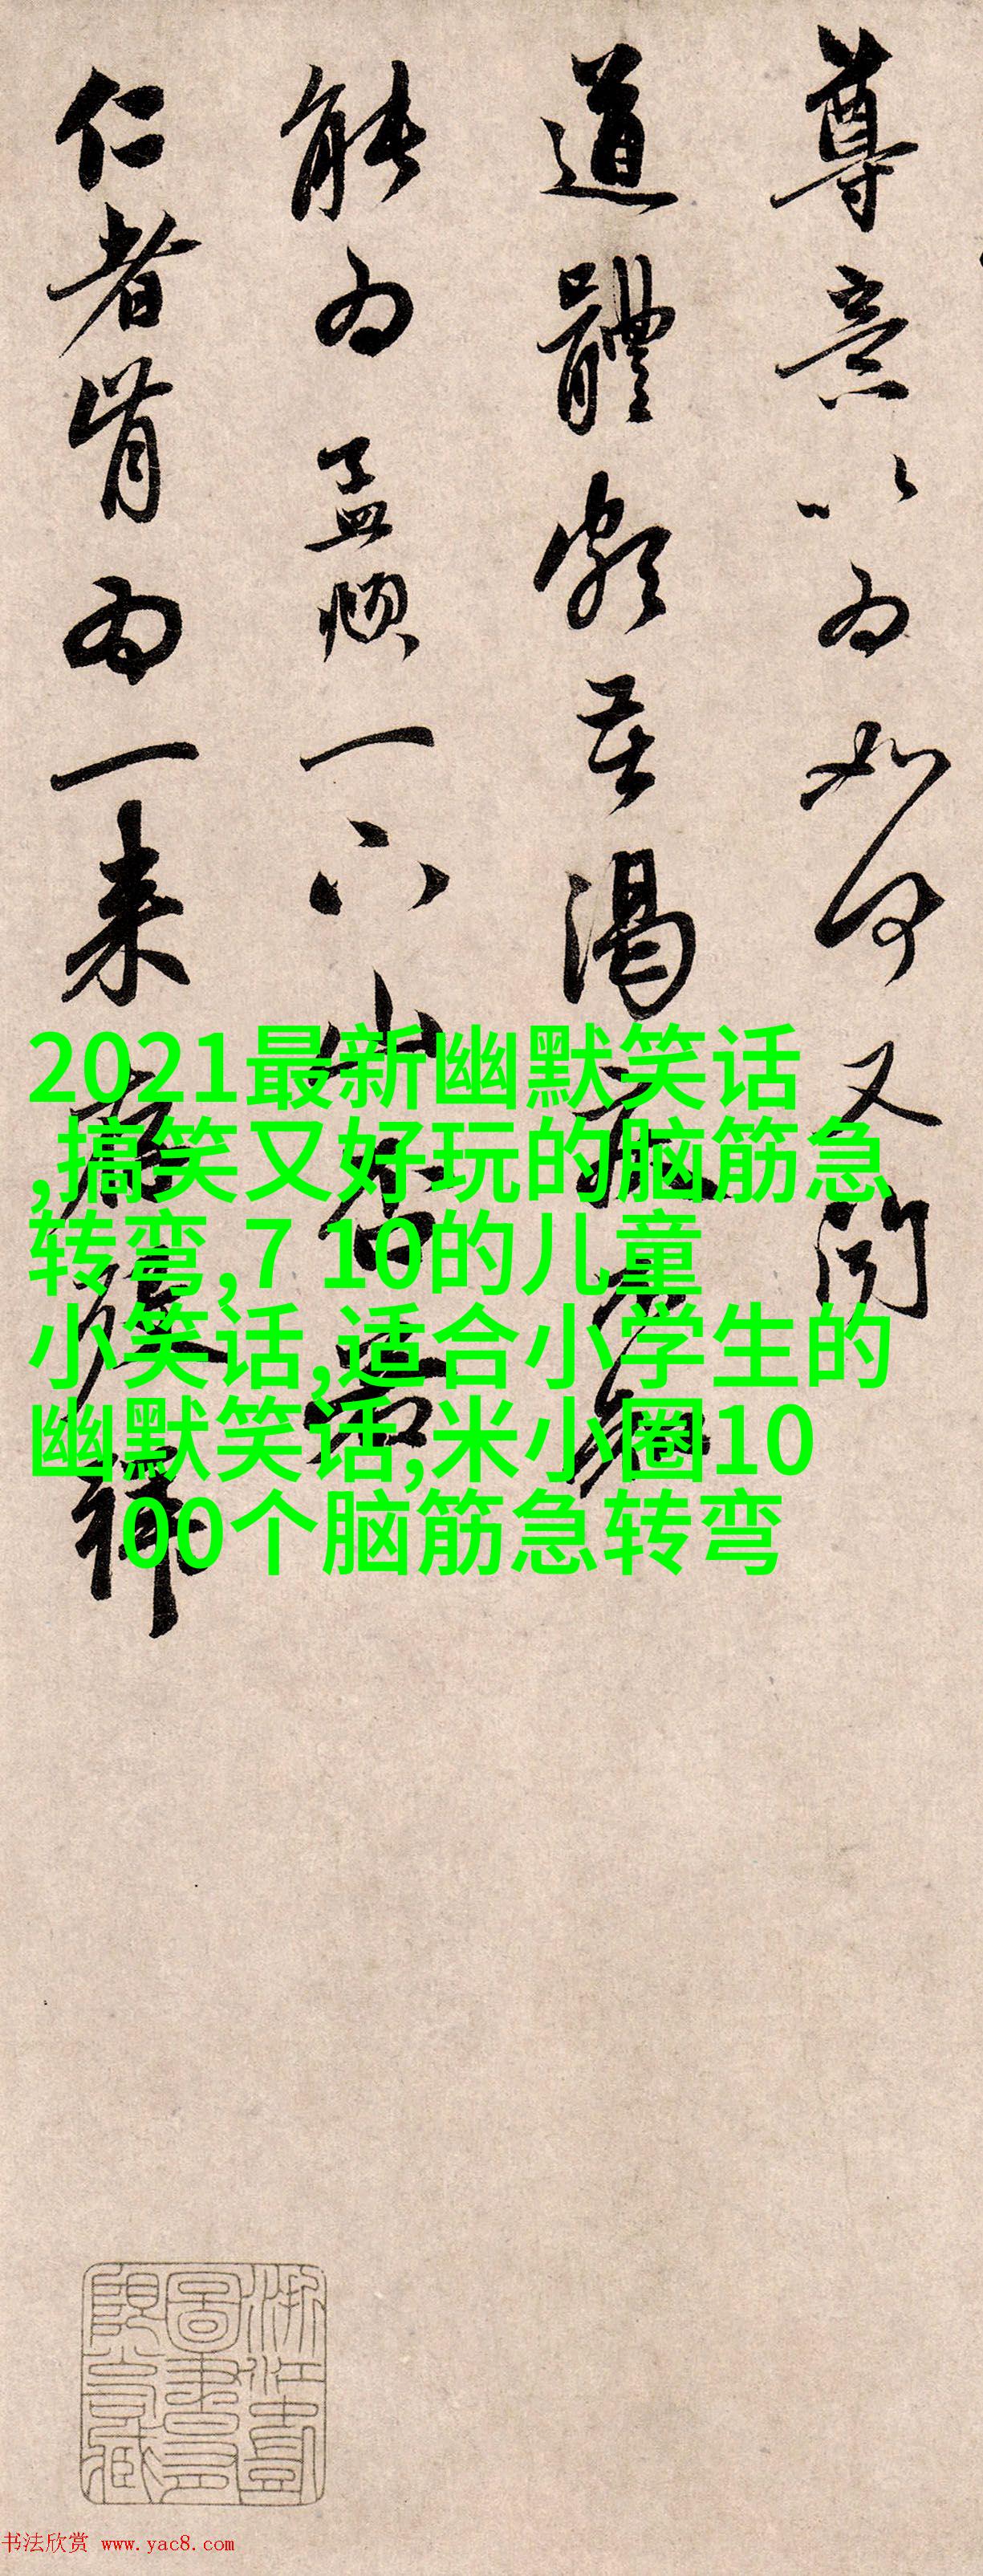 尊意以为如何又闻
道體頗苦渴
能为孟頫一下山否
仁者肯为一来
2021最新幽默笑话
,搞笑又好玩的脑筋急
转弯,7 10的儿童
小笑话,适合小学生的
幽默笑话,米小圈10
00个脑筋急转弯
书法欣赏 www.yac8.com